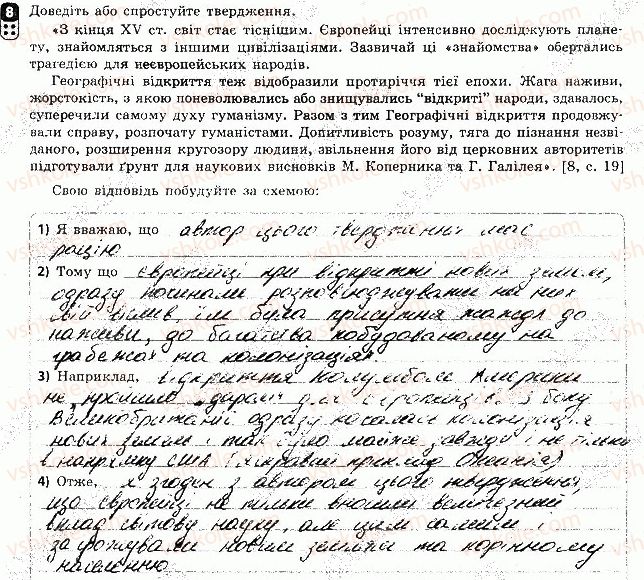 8 Доведіть або спростуйте твердження.
«З кінця XV ст. світ стає тіснішим. Європейці інтенсивно досліджують плане-
ту, знайомляться з іншими цивілізаціями. Зазвичай ці «знайомства» обертались
трагедією для неєвропейських народів.
Географічні відкриття теж відобразили протиріччя тієї епохи. Жага наживи,
жорстокість, з якою поневолювались або знищувались "відкриті" народи, здавалось,
суперечили самому духу гуманізму. Разом з тим Географічні відкриття продовжу-
вали справу, розпочату гуманістами. Допитливість розуму, тяга до пізнання незві-
даного, розширення кругозору людини, звільнення його від церковних авторитетів
підготували ґрунт для наукових висновків М. Коперника та Г. Галілея». [8, с. 19]
Свою відповідь побудуйте за схемою:
1) Я вважаю, що автор цього твердження має
рацію
2) Тому що європейці при відкритті нових земель,
одразу починали розповсюджувати на них
свій вплив, їм була присутня жага до
наживи, до багатства побудованому на
грабежах та колонізаціях.
3) Наприклад, відкриття Колумбом Америки
не пройшло для з боку
Великобританії одразу почалась колонізація
нових земель і так було майже завжди і не тільки
в напрямку США (яскравий приклад Океанія)
4) Отже, я згоден з автором цього твердження,
що європейці не тільки вносили величезний
вклад світову науку, але цим самим і
загрожували новим землям та корінному
населенню